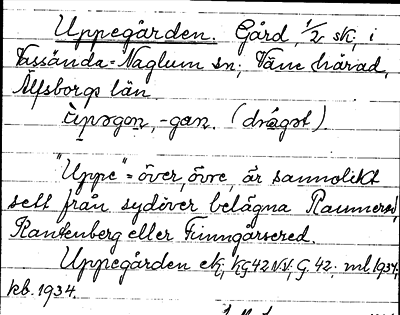 Uppegården. Gård, 1/2 sk, i
Vassända-Naglum sn; Väne härad,
Älfsborgs län.
ùpəgɑn, -gan. (dràgət)
"Uppe" = över, övre, är sannolikt
sett från sydöver belägna Ramnered,
Rantenberg eller Finngårsered.
Uppegården ek; KG 42 NV; G. 42. ml 1934,
kb. 1934.